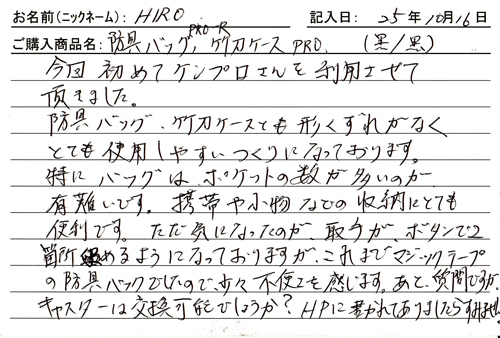 お名前(ニックネーム): HIRO 記入日: 25年10月16日
PRO-R
ご購入商品名: 防具バッグ, 竹刀ケース PRO. (黒/黒)
今回 初めてケンプロさんを利用させて
頂きました。
防具バッグ、竹刀ケースとも形くずれがなく
とても使用しやすいつくりになっております。
特にバッグは、ポケットの数が多いのが、
有難いです。携帯や小物などの収納にとても
便利です。ただ気になったのが、取手が、ボタンで2
箇所 止めるようになっておりますが、これまでマジックテープ
の防具バックでしたので、少々不便さを感じます。あと、質問ですが、
キャスターは交換可能でしょうか? HPに書かれてありましたらすみません